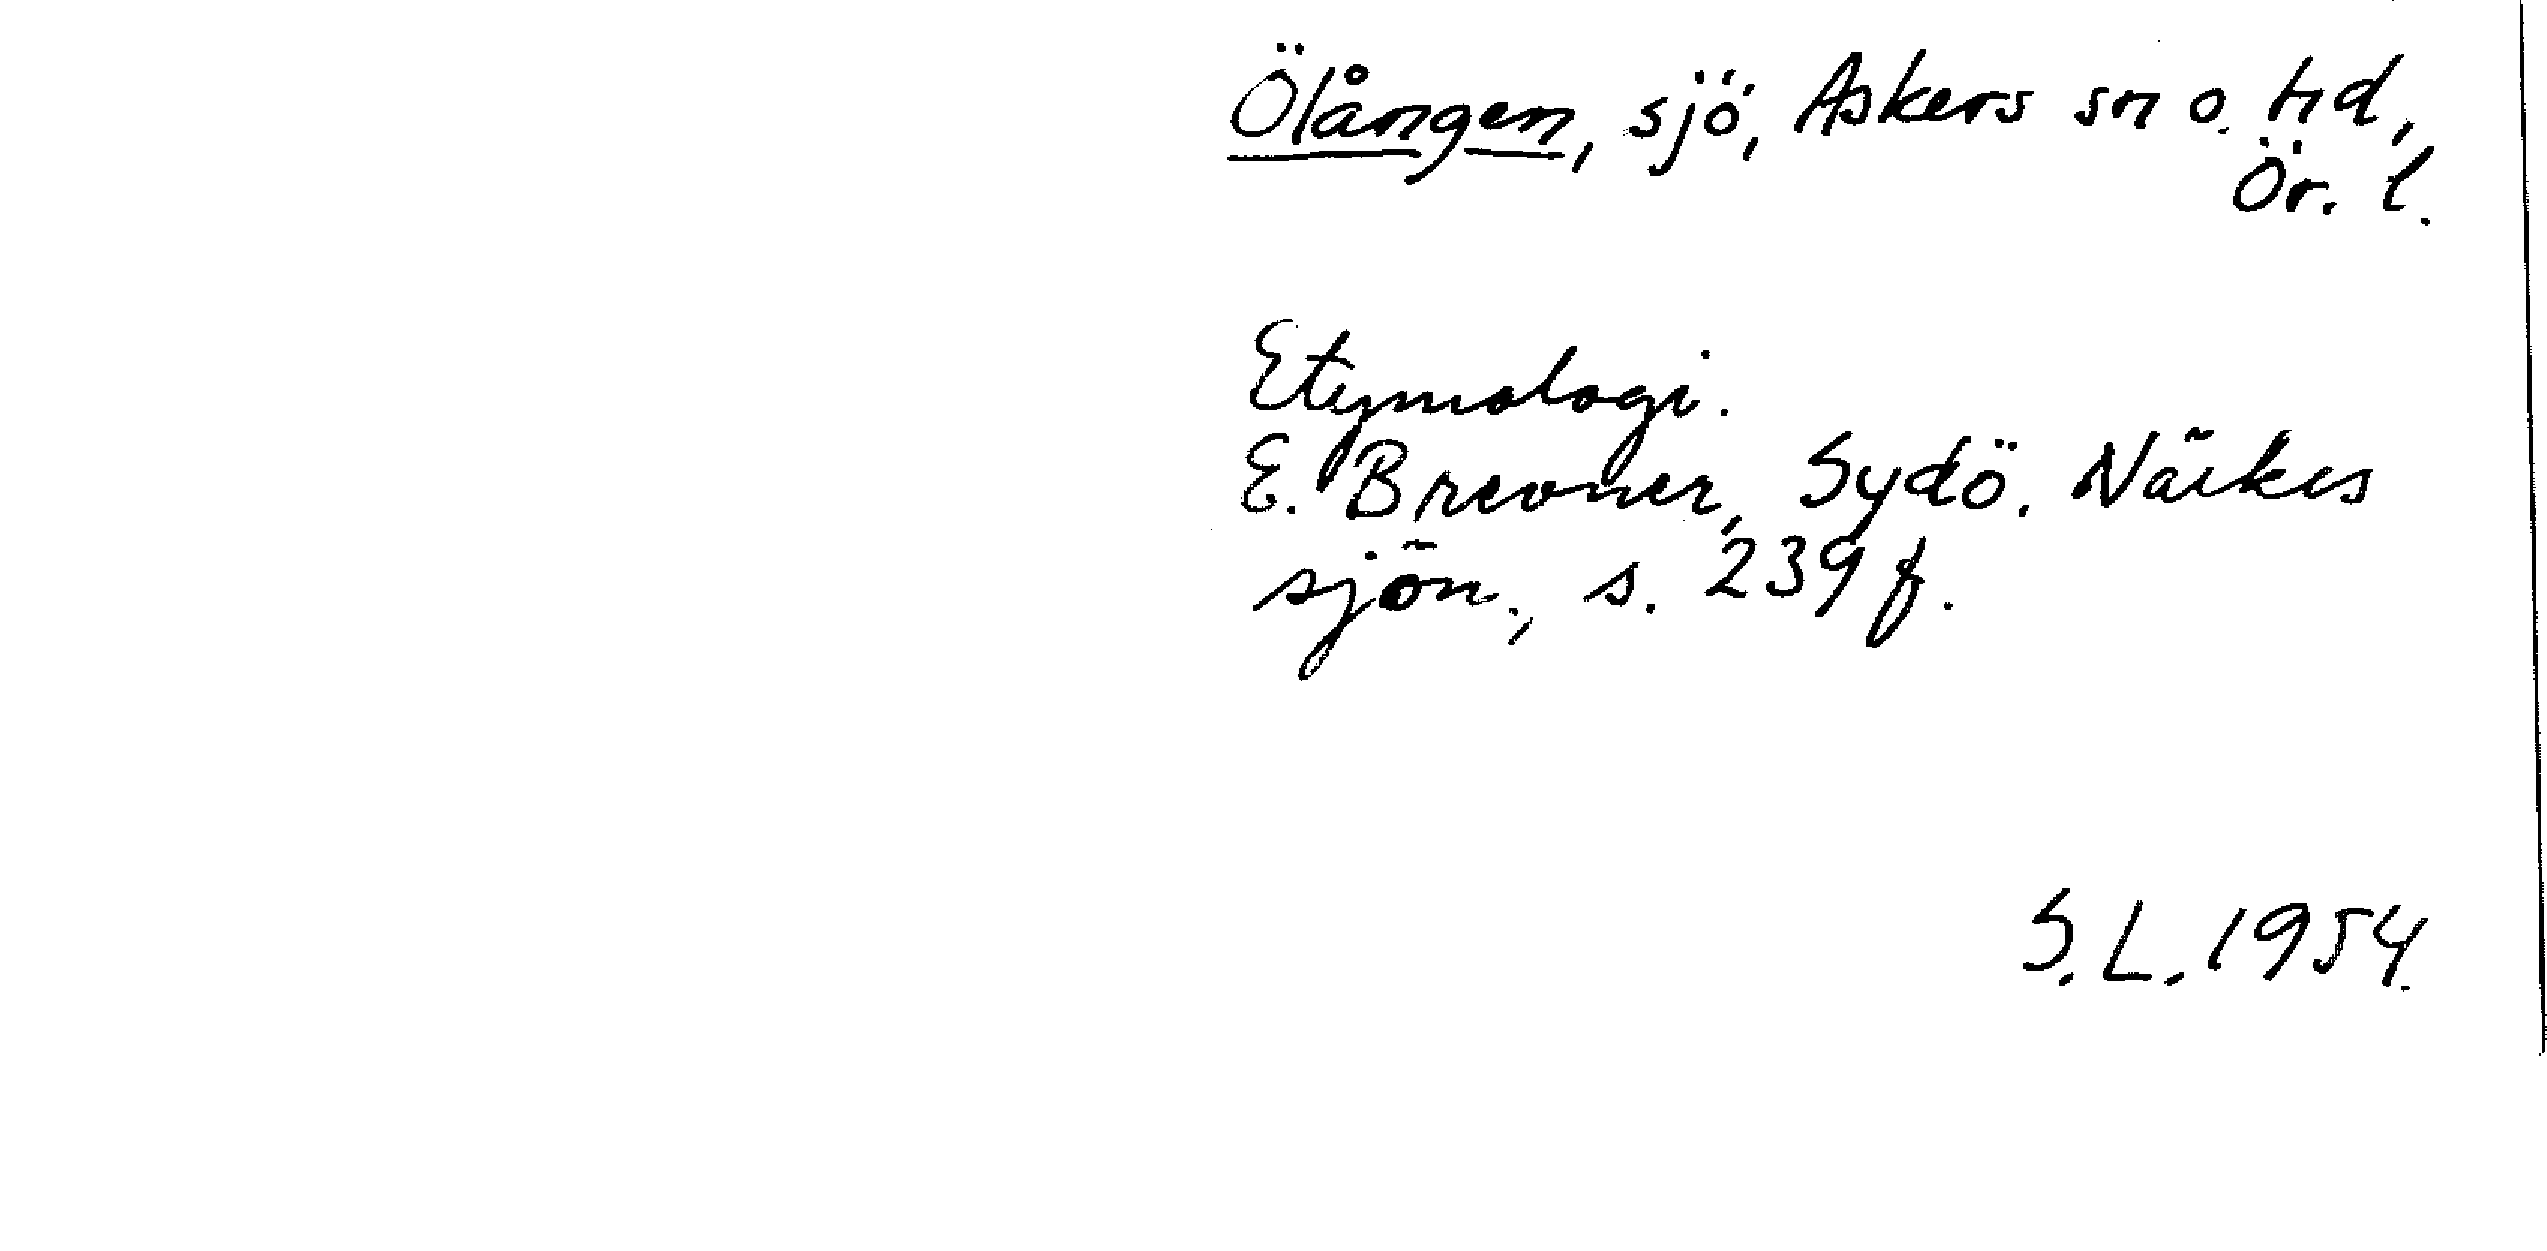 Ölången, sjö, Askers sn o. hd,
Ör. l.
Etymologi.
E. Brevner, Sydö. Närkes
sjön., s. 239 f.
S. L. 1954.